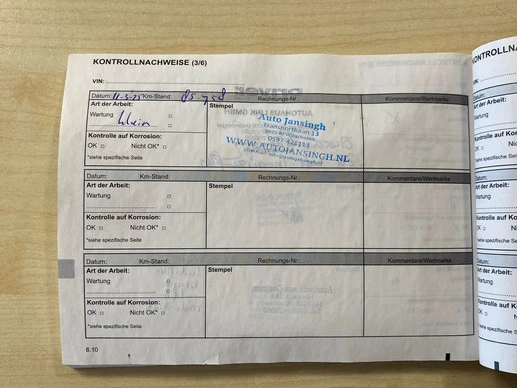 KONTROLLNACHWEISE (3/6)
VIN:
Datum: 11-3-25 Km-Stand: 85 758 Rechnungs-Nr.: Kommentare/Wertmarke
Art der Arbeit: Stempel
Wartung klein
Auto Jansingh
Transportbaan 13
WWW.AUTOJANSINGH.NL
Kontrolle auf Korrosion:
OK Nicht OK*
*siehe spezifische Seite
Datum: Km-Stand: Rechnungs-Nr.: Kommentare/Wertmarke
Art der Arbeit: Stempel
Wartung
Kontrolle auf Korrosion:
OK Nicht OK*
*siehe spezifische Seite
Datum: Km-Stand: Rechnungs-Nr.: Kommentare/Wertmarke
Art der Arbeit: Stempel
Wartung
Kontrolle auf Korrosion:
OK Nicht OK*
*siehe spezifische Seite
6.10
KONTROLLNA
VIN:
Datum:
Art der Arbeit:
Wartung
Kontrolle auf
OK
*siehe spezifische
Datum:
Art der Arbeit:
Wartung
Kontrolle auf
OK
Datum:
Art der Arbeit:
Wartung
Kontrolle auf
OK